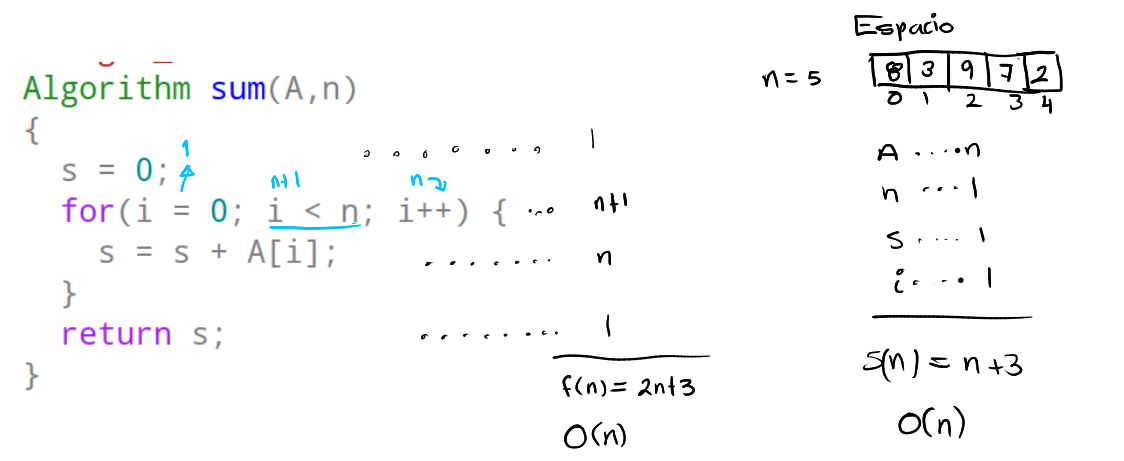 Algorithm sum(A,n)
{
s = 0; ....... 1
1
n+1 n
for(i = 0; i < n; i++) { ... n+1
s = s + A[i]; ....... n
}
return s; ........ 1
}
f(n) = 2n+3
O(n)
Espacio
n = 5
8 3 9 7 2
0 1 2 3 4
A ....n
n ...1
s ....1
i ....1
S(n) = n+3
O(n)